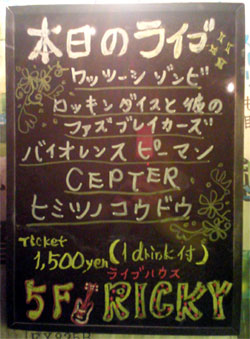 本日のライブ
ワッツーシ ゾンビ
ロッキンダイスと 彼の
ファズブレイカーズ
バイオレンス ピーマン
CEPTER
ヒミツノ コウドウ
Ticket
1,500yen (1drink付)
ライブハウス
5F RICKY